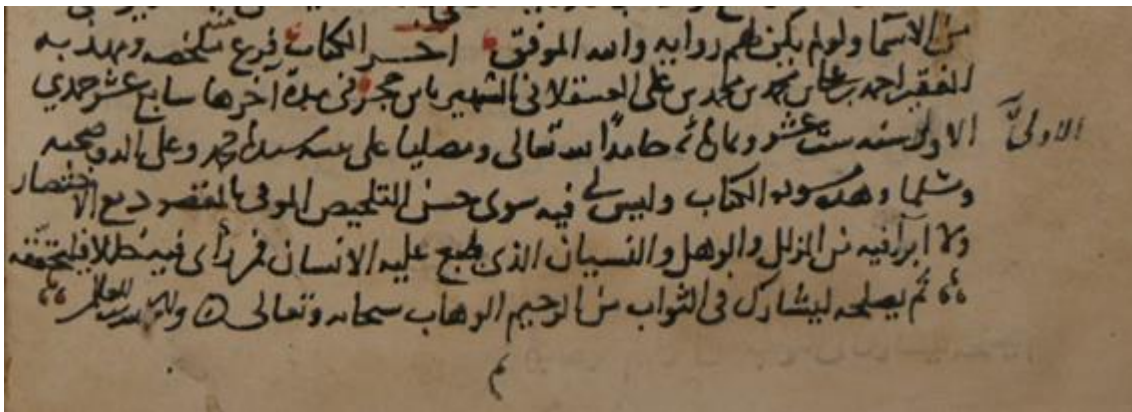 من الاسما ولو لم يكن لهم رواية والله الموفق اخر الكتاب فرغ ملخصه ومهذبه
الفقير احمد بن علي بن محمد بن محمد بن علي العسقلاني الشهير بابن حجر في مدة آخرها سابع عشر جمدي
الاولى سنه ست عشر وثمان مائة حامدا لله تعالى ومصليا على سيدنا محمد وعلى اله وصحبه
الاولى
ومسلما وهذه مسودة الكتاب وليس لي فيه سوى حسن التلخيص الموفي بالمقصود مع الاختصار
ولا ابرا فيه من الزلل والوهل والنسيان الذي طبع عليه الانسان فمن رأى فيه خللا فليحققه
ثم يصلحه ليشارك في الثواب من الرحيم الوهاب سبحانه وتعالى
م